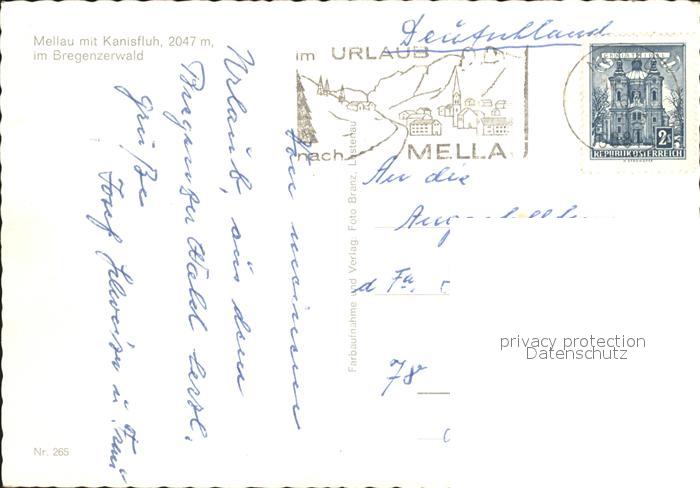 Mellau mit Kanisfluh, 2047 m,
im Bregenzerwald
Von meinem
Urlaub, aus dem
Bregenzer Wald herzl.
Grüße
Josef u. Frau
Nr. 265
Farbaufnahme und Verlag: Foto Branz, Lustenau
Deutschland
im URLAUB
nach MELLA
2 S
REPUBLIK ÖSTERREICH
An die
d Fa.
78
privacy protection
Datenschutz